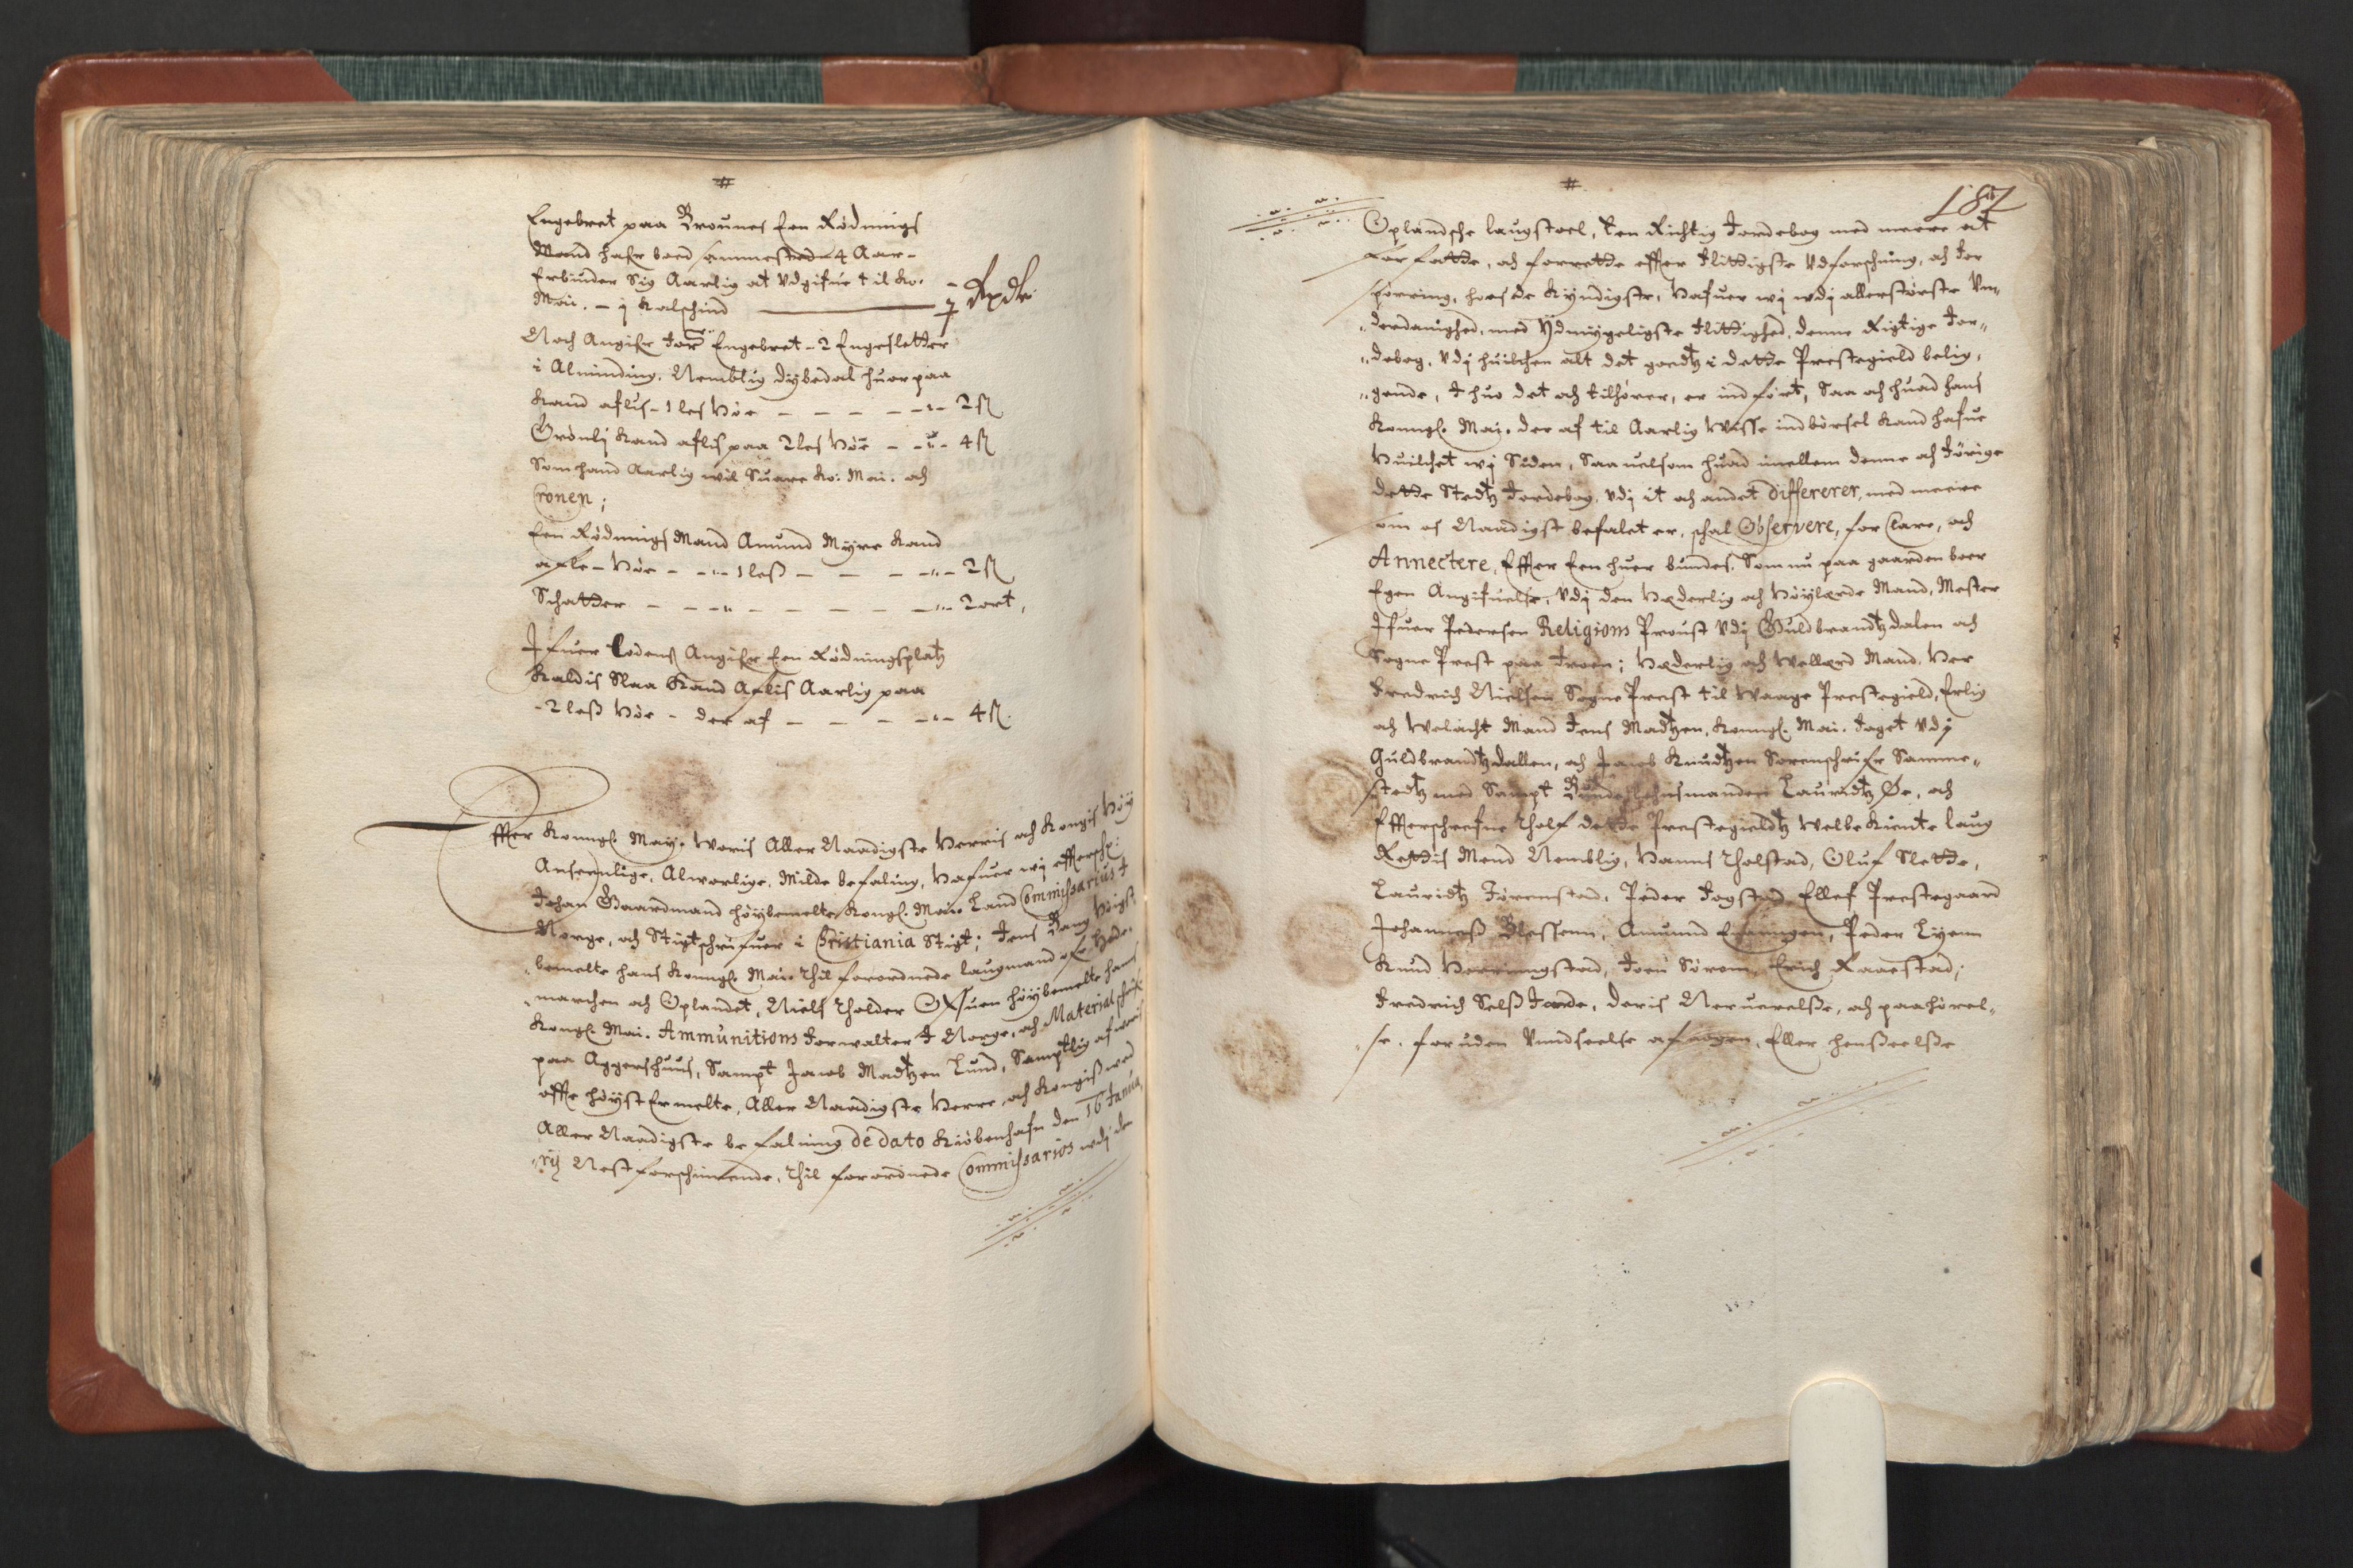 Engebret paa Brounes Een Rødnings
Mand hafr boed sammested 4 Aar
Erbiuder Sig Aarlig at Vdgifue til Ko.
Mai. – j Kalschind
Noch Angifr for.ne Engebret – 2 Engesletter
i Alminding, Nemblig dybedal huorpaa
Kand aflis – 1 les Høe – 2 ß
Grønlj Kand aflis paa 2 les Høe – 4 ß
Som hand Aarlig wil Suare Ko: Mai: och
Cronen;
Een Rødnings Mand Amund Myre Kand
afle – Høe – 1 less – 2 ß
Schatter – 2 ort,
Ifuer Lodens Angifr Een Rødningsplatz
Kaldis Slaa Kand Aflis Aarlig paa
– 2 less Høe – der af – 4 ß.
Effter Konngl. May. Woris Aller Naadigste Herris och Kongis Høy
Anseenlige, Alworlige, Milde befaling, Hafuer wj effterschr:
Johan Gaardmand høybemelte Kongl. Mai. Land Commissarius I
Norge, och Stigtschrifuer i Christiania Stigt; Jens Bang Høigst
bemelte hans Konngl. Mai. Thil forordnede laugmand ofr Hede-
marchen och Oplandet, Niels Tholder Ofuen høybemelte hans
Kongl. Mai. Ammunitions forwalter I Norge, och Material schrifr
paa Aggerschuus, Sampt Jacob Madtzen Lund, Samptlig af woris
offte høyst Ermelte, Aller Naadigste Herre och Kongis wed
Aller Naadigste befalning de dato Kiøbenhafn den 16 Janua
rij Nest forschinende, Thil forordnede Commissarios wdj de
187
Oplandsche laugstoel, Een Richtig Jordebog med meere at
forfatte, och forrette effter flittigste Vdforschning, och for
spørring, hoes de Kyndigste, Hafuer wj wdj allerstørste Vn-
derdanighed, med Ydmygeligste flittighed, denne Rigtige Jor-
debog, Vdj huilchen alt det goedtz i dette Prestegield belig-
gende, I huo det och tilhører, er indført, Saa och huad hans
Konngl. Mai. der af til Aarlig Wisse indkørsel Kand hafue
Huilchet wj Siden, Saa uelsom huad imellem denne och førige
dette Stedtz Jordebog, Vdj it och andet differerer, med meere
om os Naadigst befalet er, schal Observere, forclare, och
Annectere, Effter Een huer bundes, Som nu paa gaarden boer
Egen Angifuelse, Vdj den Hæderlig och Høylærde Mand, Mester
Ifuer Pedersen Religions Proust Vdj Guldbrandtzdalen och
Sogne Prest paa froen; Hæderlig och Wellærd Mand, Her
Fredrich Nielsen Sogne Prest til Waage Prestegield, Erlig
och Welacht Mand Jens Madtzen, Konngl. Mai. foget Vdj
Guldbrandtzdallen, och Jacob Knudtzen Sorenschrifr Samme-
stedtz med Sampt Bunde Lehnsmanden Lauridtz Øe, och
Efftterschrefne Tholf dette Prestegieldtz Welbekiente laug
Rettis Mend Nemblig, Hanns Tholstad, Oluf Slette,
Lauridtz Jørenstad, Peder Fogstad, Ellef Prestegaard
Johannes Blessem, Amund Eføngen, Peder Lyenn
Knud Horningstad, Joen Sørem, Erich Raaestad,
Fredrich Selssjorde, deris Neruerelse, och paahørel-
se, foruden Vundseelse af nogen, Eller henseelse